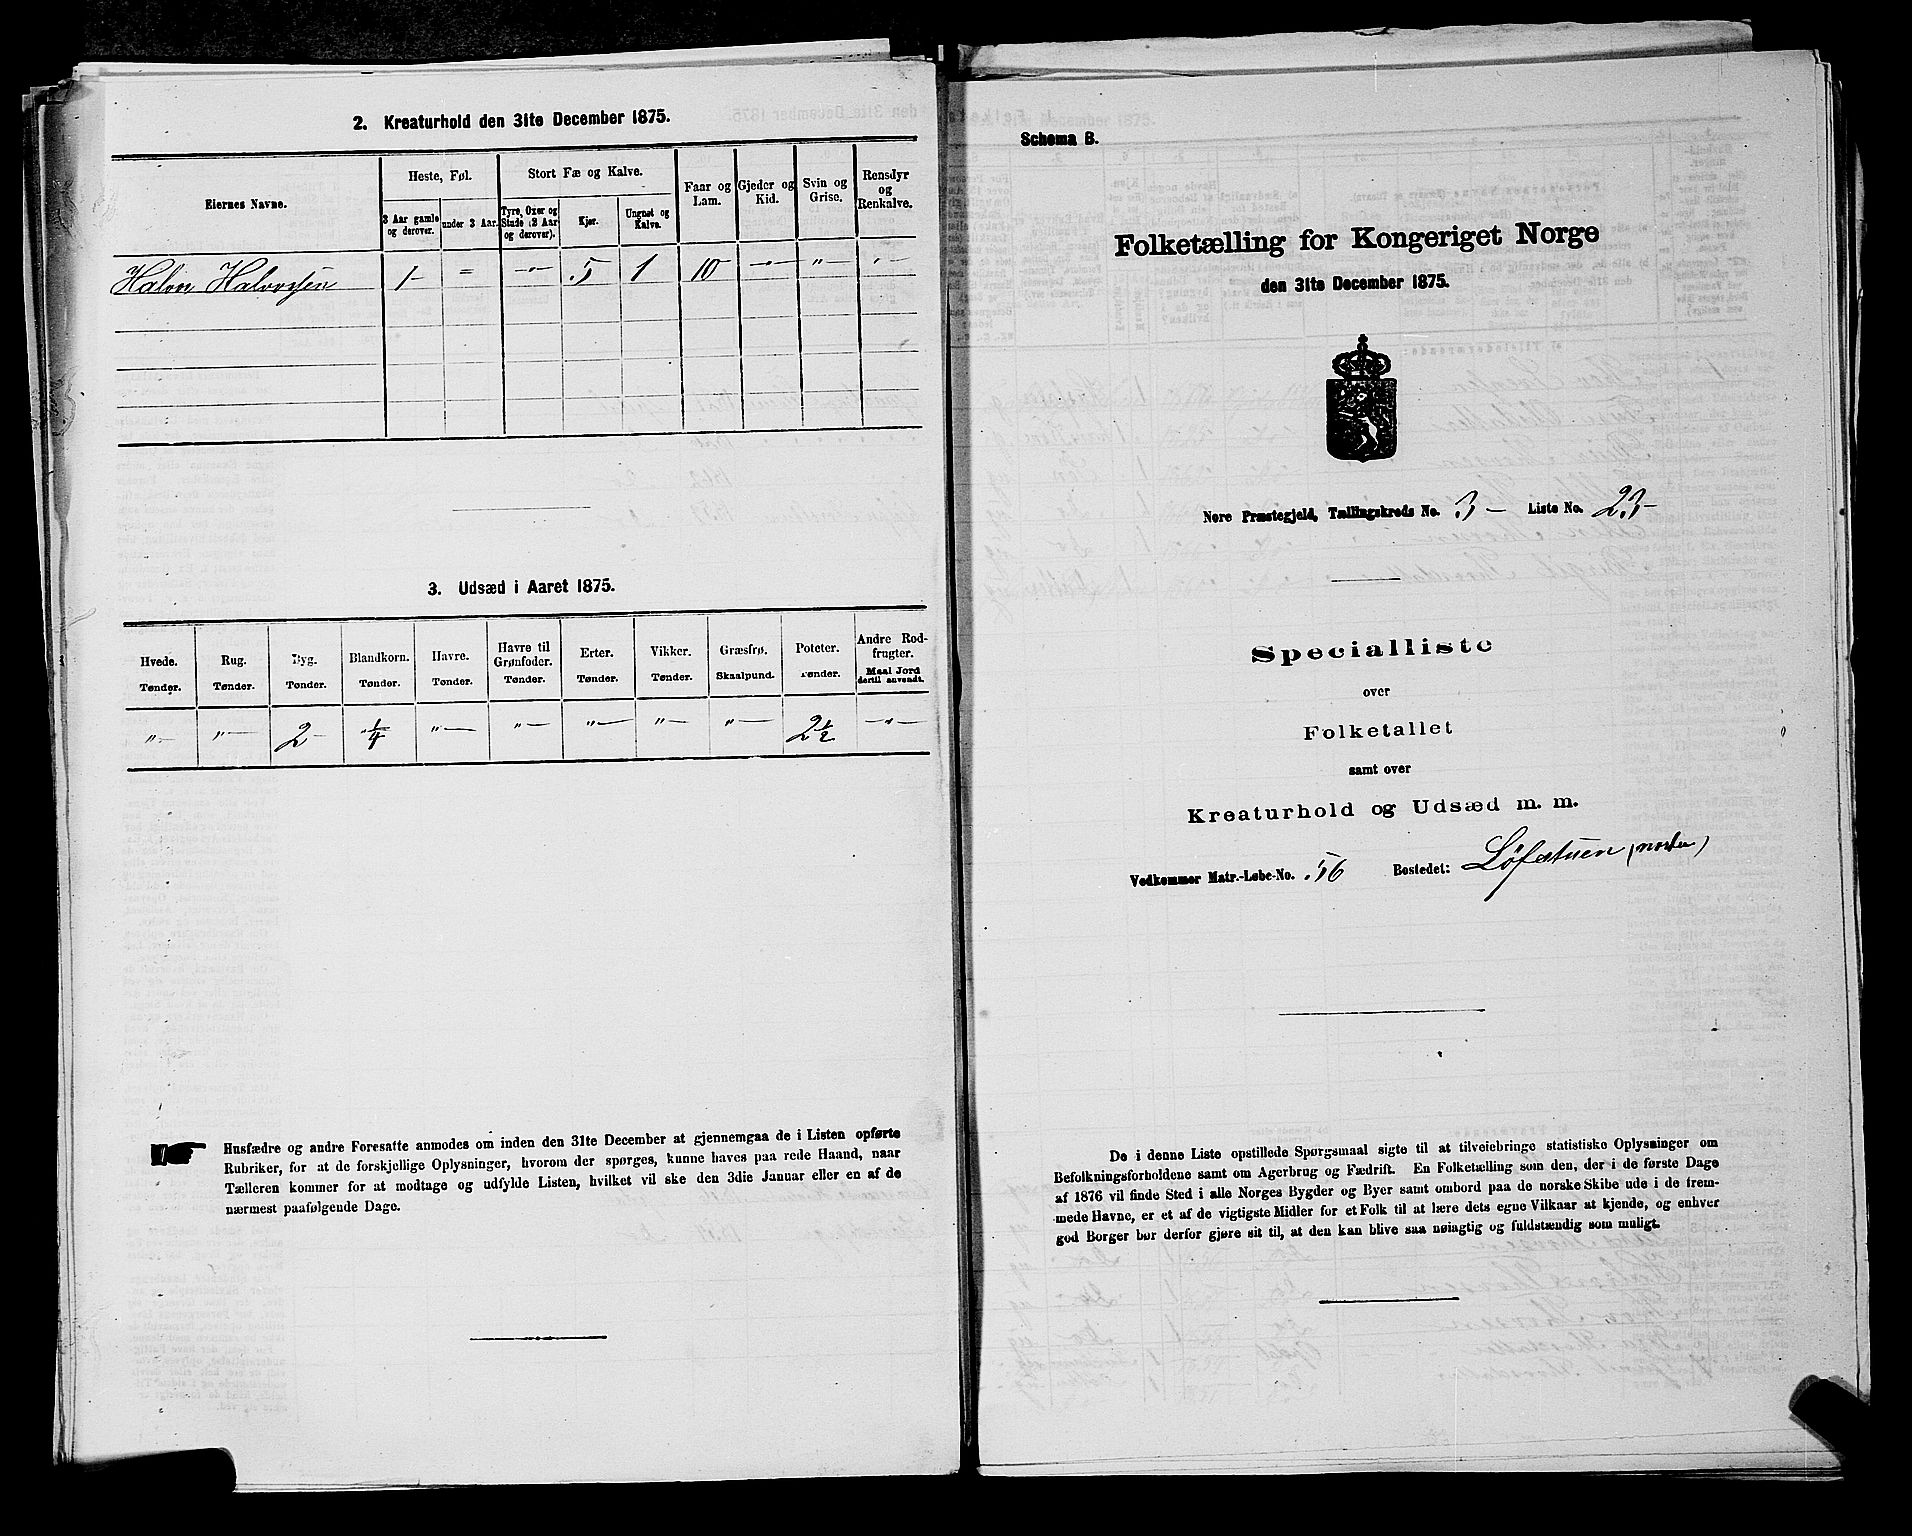 2. Kreaturhold den 31te December 1875.
Eiernes Navne.
Heste, Føl.
Stort Fæ og Kalve.
Faar og Lam.
Gjeder og Kid.
Svin og Grise.
Rensdyr og Renkalve.
3 Aar gamle og derover.
under 3 Aar.
Tyre, Oxer og Stude (2 Aar og derover).
Kjør.
Ungnøt og Kalve.
Halvorssen 1 - " - " - 5 1 10 - " - " - " -
3. Udsæd i Aaret 1875.
Hvede. Rug. Byg. Blandkorn. Havre. Havre til Grønfoder. Erter. Vikker. Græsfrø. Poteter. Andre Rodfrugter.
Tønder. Tønder. Tønder. Tønder. Tønder. Tønder. Tønder. Tønder. Skaalpund. Tønder. Maal Jord dertil anvendt.
" - " - 2 - 1/4 " - " - " - " - " - 2 1/2 - " -
Husfædre og andre Foresatte anmodes om inden den 31te December at gjennemgaa de i Listen opførte
Rubriker, for at de forskjellige Oplysninger, hvorom der spørges, kunne haves paa rede Haand, naar
Tælleren kommer for at modtage og udfylde Listen, hvilket vil ske den 3die Januar eller en af de
nærmest paafølgende Dage.
Schema B.
Folketælling for Kongeriget Norge
den 31te December 1875.
Nore Præstegjeld, Tællingskreds No. 3 - Liste No. 23 -
Specialliste
over
Folketallet
samt over
Kreaturhold og Udsæd m. m.
Vedkommer Matr.-Løbe-No. 56 Bostedet: Løfstuen
De i denne Liste opstillede Spørgsmaal sigte til at tilveiebringe statistiske Oplysninger om
Befolkningsforholdene samt om Agerbrug og Fædrift. En Folketælling som den, der i de første Dage
af 1876 vil finde Sted i alle Norges Bygder og Byer samt ombord paa de norske Skibe ude i de frem-
mede Havne, er et af de vigtigste Midler for et Folk til at lære dets egne Vilkaar at kjende, og enhver
god Borger bør derfor gjøre sit til, at den kan blive saa nøiagtig og fuldstændig som muligt.